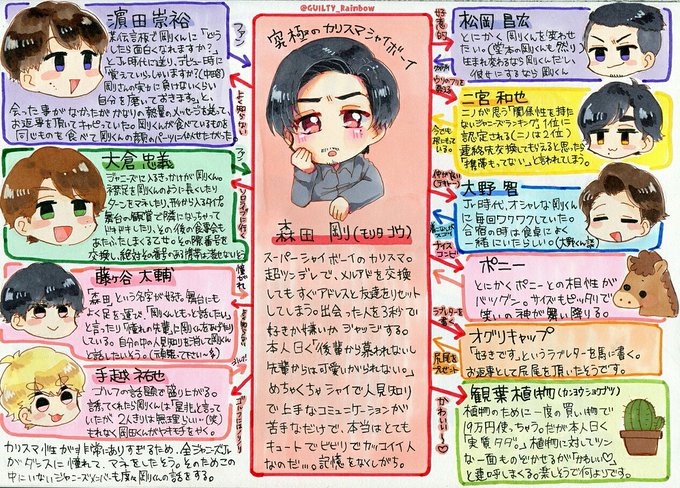 @GUILTY_Rainbow
濵田崇裕
某伝言板で剛くんに「どう
したら面白くなれますか?」
とJr.時代に送り、デビュー時に
「覚えていらっしゃいますか?(中略)
剛さんの笑いに負けないくらい
自分を磨いておきます。」と、
会った事がなかったがかなりの熱量のメッセージを送って
お返事を頂いてキャピっていた。剛くんが食べているものを
ファン
よく知らない
大倉忠義
ジャニーズに入るきっかけが剛くん。
襟足を剛くんのように長くしたり
舞台の観賞で隣になっちゃって
ドキドキしたり、その後の食事会も
ファン
ソロライブに行く
藤ヶ谷太輔
「森田」という名字が好き。舞台にも
よく足を運び、「剛くんともっと話したい」
と言ったり「憧れの先輩」に剛くんをあげたり
している。自分の中の人見知りを消して剛くん
と話したいそう。(頑張って下さい…)
憧れ
よく知らない
手越祐也
ゴルフの話題で盛り上がる。
誘ってくれたら剛くんは「是非」と言って
いたが、2人きりは無理らしい(笑)
もれなく岡田くんがヤキモチをやく。
カリスマ性が非常にありすぎるため、全ジャニーズJr.
がダンスに憧れて、マネをしたそう。そのためこの
中にいないジャニーズメンバーも度々剛くんの話をする。
究極のカリスマシャイボーイ
森田 剛(モリタ ゴウ)
スーパーシャイボーイのカリスマ。
超ツンデレで、メルアドを交換
してもすぐアドレスと友達をリセット
してしまう。出会った人を3秒で
好きか嫌いかジャッジする。
本人曰く「後輩から慕われないし
先輩からは可愛いがられない。」
めちゃくちゃシャイで人見知り
で上手なコミュニケーションが
苦手なだけで、本当はとても
キュートでビビリでカッコイイ人
なのだ…。記憶をなくしがち。
好意的
松岡昌宏
とにかく剛くんを変わらせ
たい。(堂本の剛くんも然り)
生まれ変わるなら剛くんだし、
彼女にするなら剛くん
二宮和也
ニノが思う「関係性を持た
ないジャニーズランキング」1位に
認定される(ニノは2位)
連絡先交換してもらえると思ったら
「携帯もってない。」と言われてしまう。
大野 智
Jr.時代、オシャレな剛くん
に毎回ワクワクしていた。
合宿の時は食卓によく
一緒にいたらしい。(大野くん談)
ナイスコンビ
ポニー
とにかくポニーとの相性が
バツグン。サイズもピッタリで
笑いの神が舞い降りる。
ラブレターを書く
尻尾をプレゼント
オグリキャップ
「好きです」というラブレターを馬に書く。
お返事として尻尾を頂いたそうです。
かわいい〜♡
観葉植物(カンヨウショクブツ)
植物のために一度の買い物で
19万円使っちゃう。だが本人曰く
「実質タダ」。植物に対してツン
な一面ものぞかせるが「かわいい♡」
と連呼しまくる。楽しそうで何よりです。